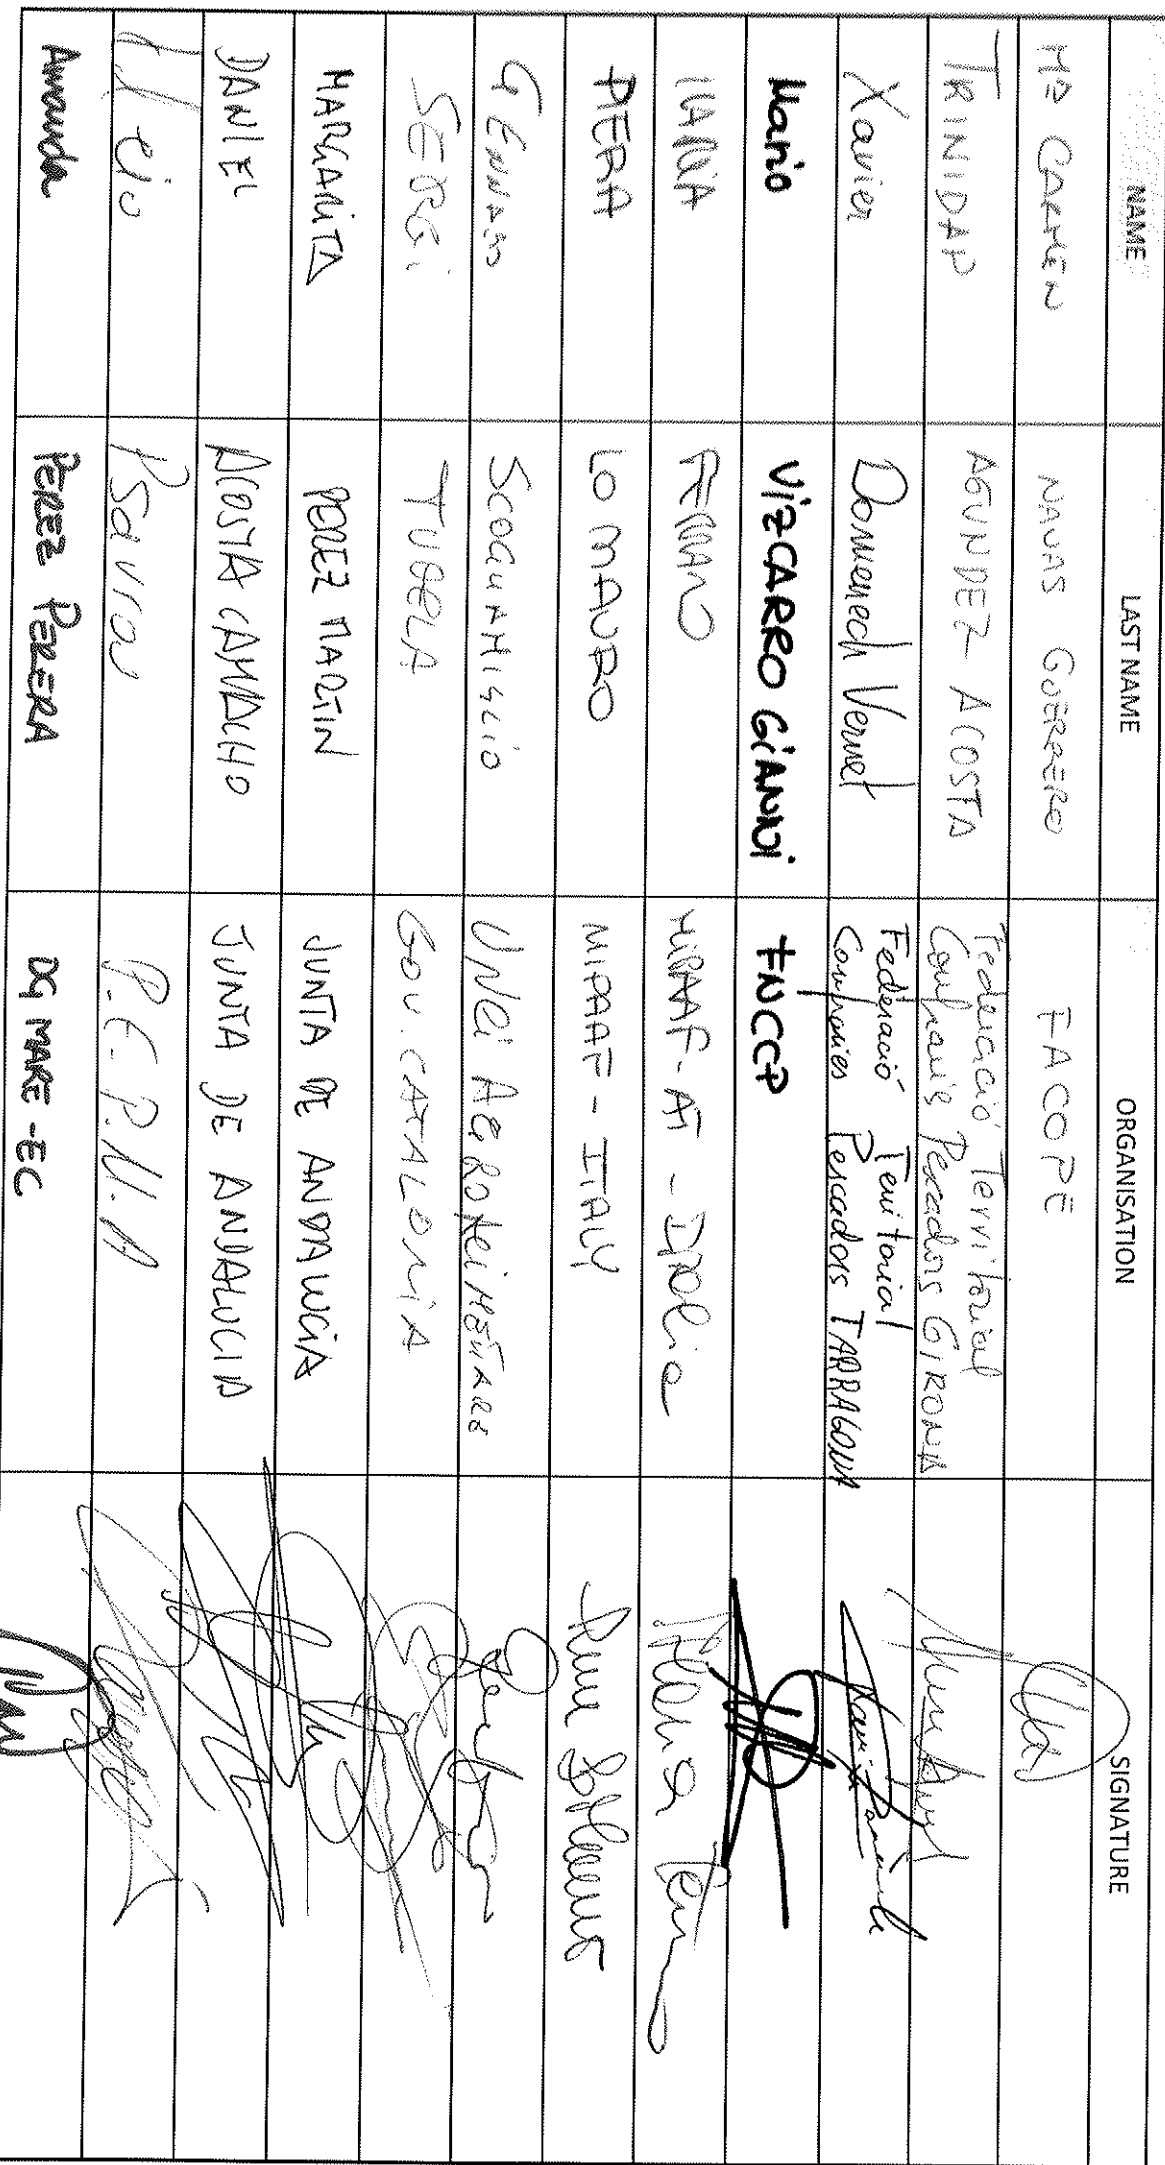 NAME LAST NAME ORGANISATION SIGNATURE
Mª CARMEN NAVAS GUERRERO FACOPE
TRINIDAD AGUNDEZ ACOSTA Federació Territorial
Confraries Pescadors GIRONA
Xavier Domenech Vernet Federació Territorial
Confraries Pescadors TARRAGONA
Mario VIZCARRO GIANNI FNCCP
ILARIA FERRARO MIPAAF-AT - Italia
PIERA LO MAURO MIPAAF - ITALY
GENNARO SCOGNAMIGLIO UNCI AGROALIMENTARE
SERGI TUDELA GOV. CATALONIA
MARGARITA PEREZ MARTIN JUNTA DE ANDALUCIA
DANIEL ACOSTA CAMACHO JUNTA DE ANDALUCIA
Psarrou P.E.P.M.A
Amanda PEREZ PERERA DG MARE - EC